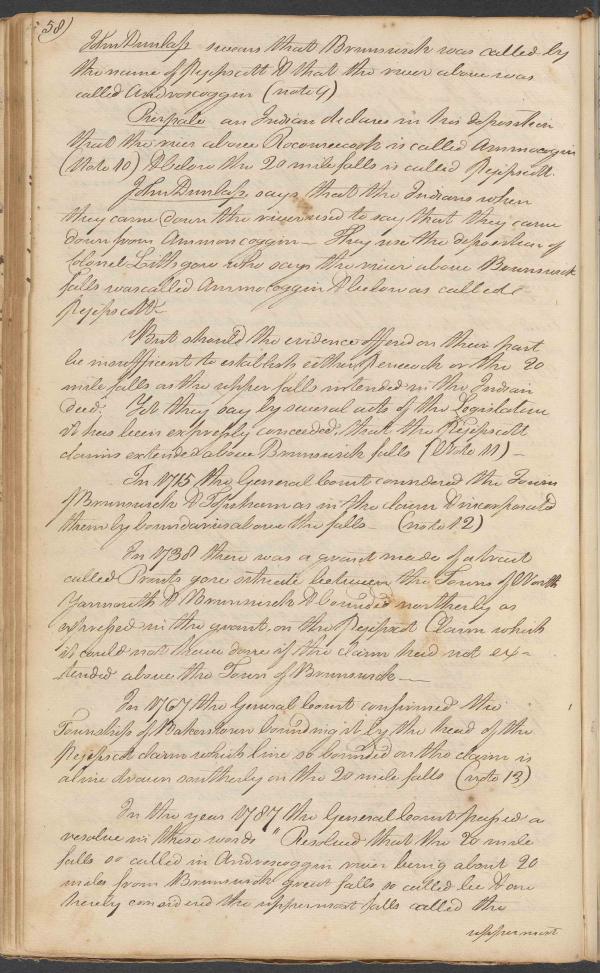 58)
John Dunlap swears that Brunswick was called by
the name of Pejipscott & that the river above was
called Androscoggin (note 9)
Perepole an Indian declares in his deposition
that the river above Rocomecook is called Ammocogin
(Note 10) & below the 20 mile falls is called Pejipscott.
John Dunlap says that the Indians when
they came down the river used to say that they came
down from Ammoncoggin— They use the deposition of
Colonel Lithgow who says the river above Brunswick
falls was called Ammocoggin & below as called
Pejipscott—
But should the evidence offered on their part
be insufficient to establish either or the 20
mile falls as the upper falls intended in the Indian
deed; Yet they say by several acts of the Legislature
it has been expressly conceeded, that the Pejipscott
claims extended above Brunswick falls (Note 11)—
In 1715 the General Court considered the Towns
of Brunswick & Topsham as in the claim & incorporated
them by boundaries above the falls— (note 12)
In 1738 there was a grant made of a tract
called gore between the Towns of North
Yarmouth & Brunswick & bounded northerly as
expressed in the grant, on the Pejipscot Claim which
it could not have done if the claim had not ex-
tended above the Town of Brunswick—
In 1767 the General Court confirmed the
Township of Bakerstown bounding it by the head of the
Pejipscot claim which line so bounded on the claim is
a line drawn southerly on the 20 mile falls (note 13)
In the year 1787 the General Court passed a
resolve in these words "Resolved that the 20 mile
falls so called in Androscoggin river being about 20
miles from Brunswick great falls so called be & are
hereby considered the uppermost falls called the
uppermost